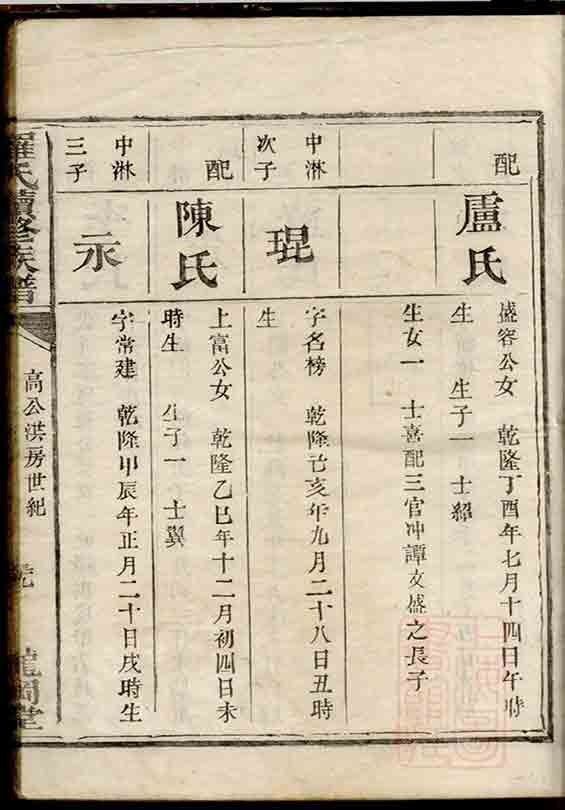 配
盧氏
盛容公女 乾隆丁酉年七月十四日午時
生 生子一 士紹
生女一 士喜配三官冲譚文盛之長子
中淋
次子
琨
字名榜 乾隆己亥年九月二十八日丑時
生
配
陳氏
上富公女 乾隆乙巳年十二月初四日未
時生 生子一 士翼
中淋
三子
永
字常建 乾隆甲辰年正月二十日戌時生
羅氏續修族譜
高公洪房世紀
龍岡堂